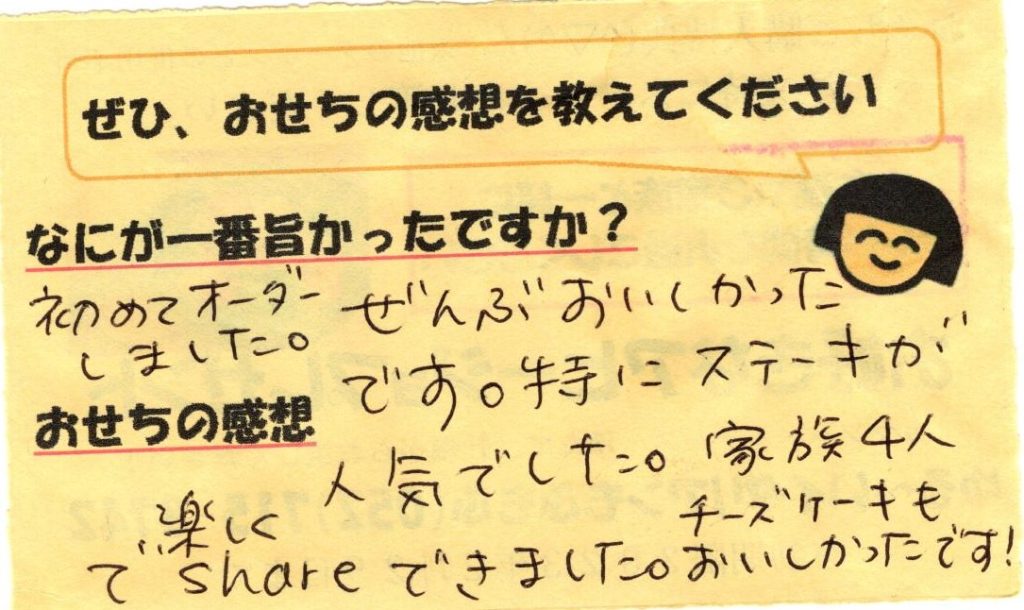 ぜひ、おせちの感想を教えてください
なにが一番旨かったですか？
初めてオーダー
しました。
ぜんぶおいしかった
です。特にステーキが
おせちの感想
人気でした。家族4人
で楽しく
shareできました。
チーズケーキも
おいしかったです!